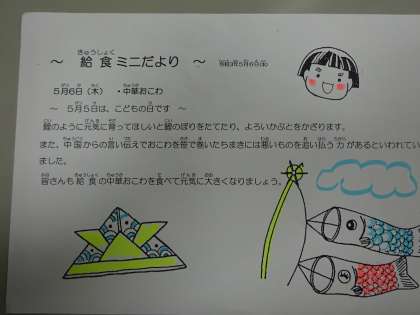 ～ 給食ミニだより ～ 令和3年5月6日(木)
5月6日（木） ・中華おこわ
～ 5月5日は、こどもの日です ～
鯉のように元気に育ってほしいと鯉のぼりをたてたり、よろいかぶとをかざります。
また、中国からの言い伝えでおこわを笹で巻いたちまきには悪いものを追い払う力があるといわれてい
ました。
皆さんも給食の中華おこわを食べて元気に大きくなりましょう。